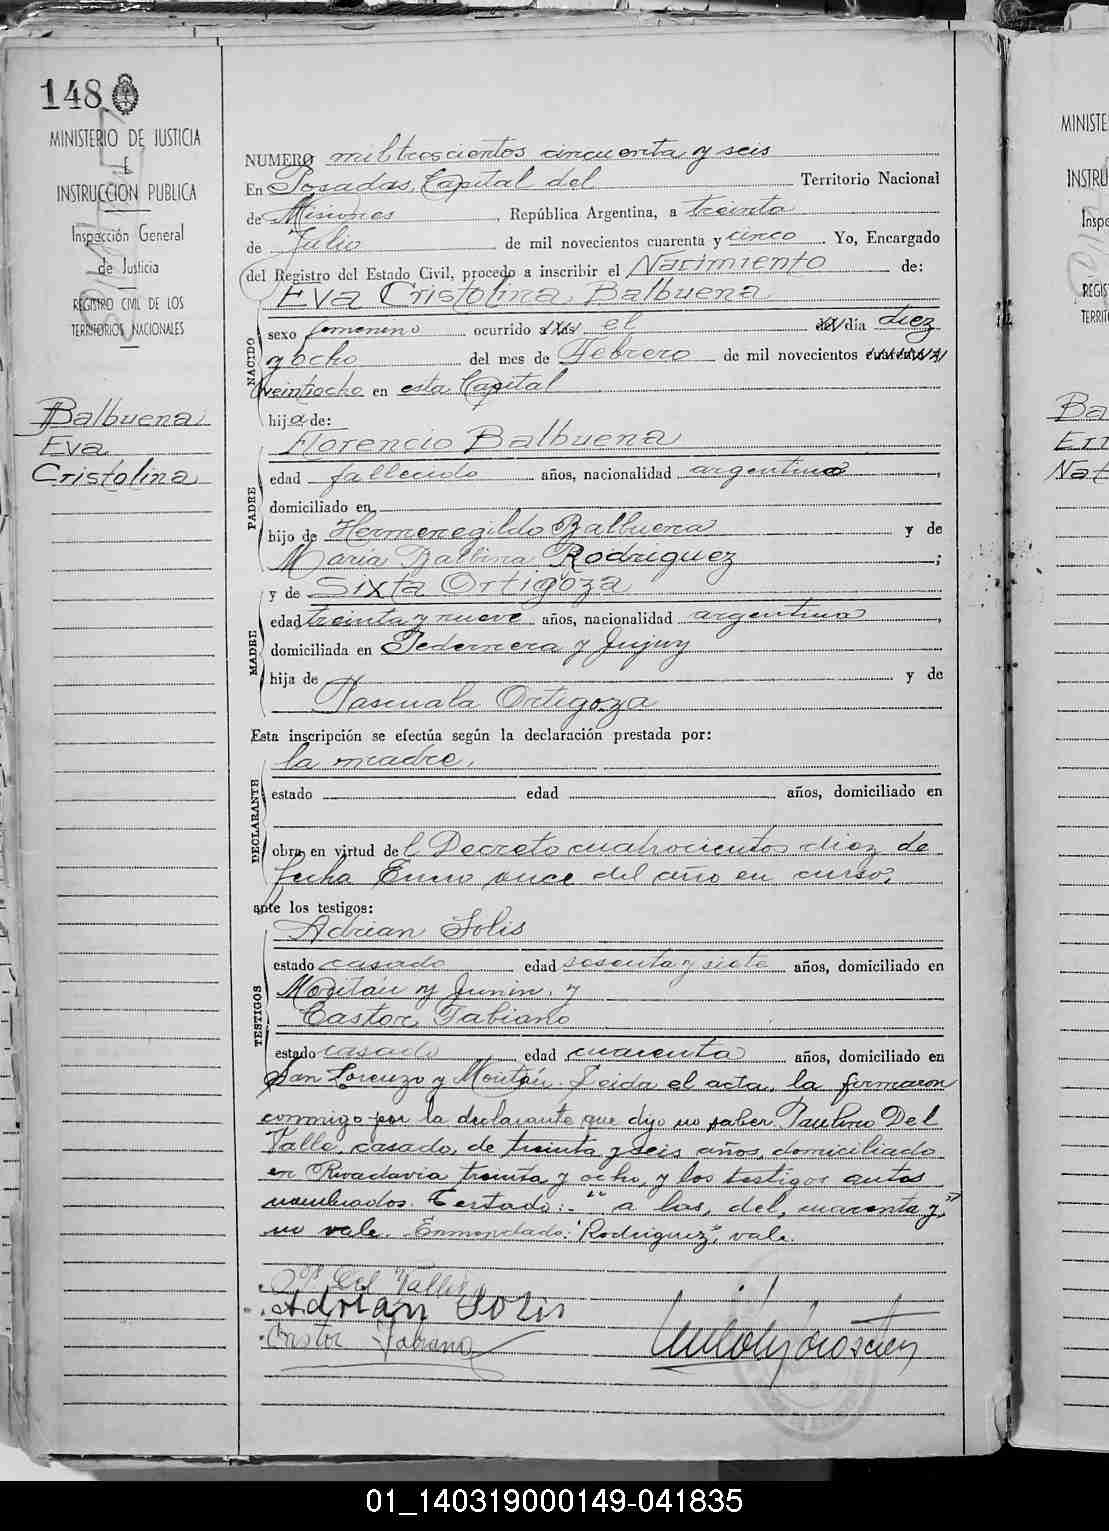 148
MINISTERIO DE JUSTICIA
E
INSTRUCCION PUBLICA
Inspección General
de Justicia
REGISTRO CIVIL DE LOS
TERRITORIOS NACIONALES
Balbuena
Eva
Cristolina
NUMERO mil trescientos cincuenta y seis
En Posadas, Capital del Territorio Nacional
de Misiones, República Argentina, a treinta
de Julio de mil novecientos cuarenta y cinco. Yo, Encargado
del Registro del Estado Civil, procedo a inscribir el Nacimiento de:
Eva Cristolina Balbuena
NACIDO
sexo femenino ocurrido a las el del día diez
y ocho del mes de Febrero de mil novecientos cuarenta y
veintiocho en esta Capital
hija de:
Florencio Balbuena
PADRE
edad fallecido años, nacionalidad argentino,
domiciliado en
hijo de Hermenegildo Balbuena y de
Maria Balbina Rodriguez;
y de Sixta Ortigoza
MADRE
edad treinta y nueve años, nacionalidad argentina,
domiciliada en Pedernera y Jujuy
hija de y de
Pascuala Ortigoza
Esta inscripción se efectúa según la declaración prestada por:
la madre,
DECLARANTE
estado edad años, domiciliado en
obra en virtud del Decreto cuatrocientos diez de
fecha Enero once del año en curso,
ante los testigos:
Adrian Solis
TESTIGOS
estado casado edad sesenta y siete años, domiciliado en
Maitáu y Junin, y
Castor Fabiano
estado casado edad cuarenta años, domiciliado en
San Lorenzo y Maitáu. Leida el acta, la firmaron
conmigo por la declarante que dijo no saber Paulino Del
Valle, casado, de treinta y seis años, domiciliado
en Rivadavia treinta y ocho, y los testigos antes
nombrados. Testado:-"a las, del, cuarenta y,"
no vale. Enmendado: "Rodriguez", vale.
Del Valle
Adrian Solis
Castor Fabiano
MINISTE
INSTRU
Inspe
REGIS
TERRIT
Ba
01_140319000149-041835